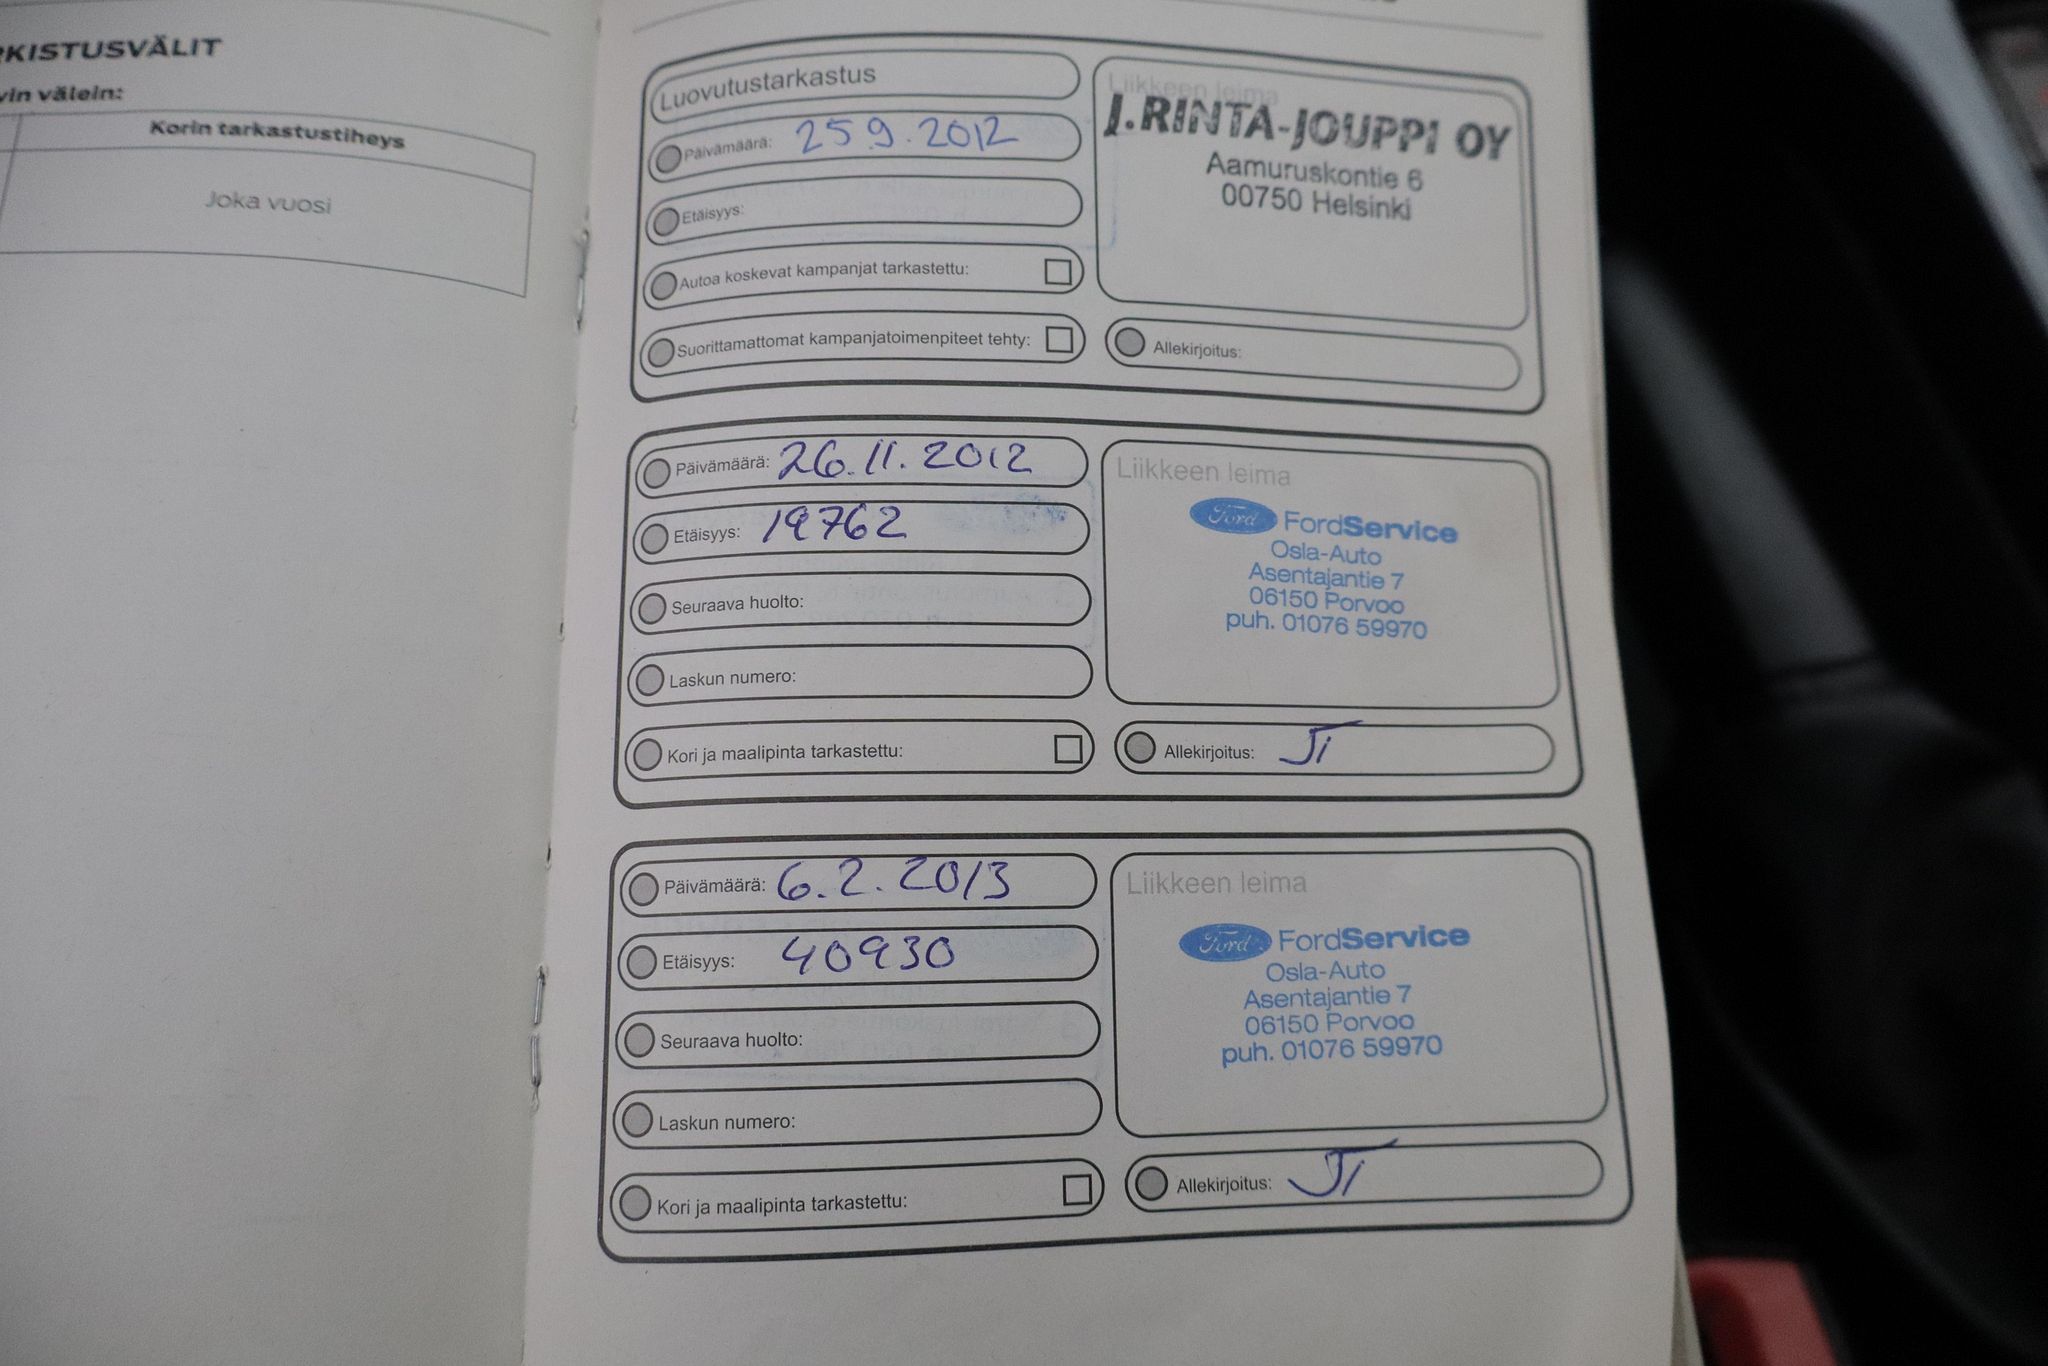 RKISTUSVÄLIT
vin välein:
Korin tarkastustiheys
Joka vuosi
Luovutustarkastus
Päivämäärä: 25.9.2012
Etäisyys:
Autoa koskevat kampanjat tarkastettu:
Suorittamattomat kampanjatoimenpiteet tehty:
Liikkeen leima
J.RINTA-JOUPPI OY
Aamuruskontie 6
00750 Helsinki
Allekirjoitus:
Päivämäärä: 26.11.2012
Etäisyys: 19762
Seuraava huolto:
Laskun numero:
Kori ja maalipinta tarkastettu:
Liikkeen leima
Ford FordService
Osla-Auto
Asentajantie 7
06150 Porvoo
puh. 01076 59970
Allekirjoitus: Ji
Päivämäärä: 6.2.2013
Etäisyys: 40930
Seuraava huolto:
Laskun numero:
Kori ja maalipinta tarkastettu:
Liikkeen leima
Ford FordService
Osla-Auto
Asentajantie 7
06150 Porvoo
puh. 01076 59970
Allekirjoitus: Ji